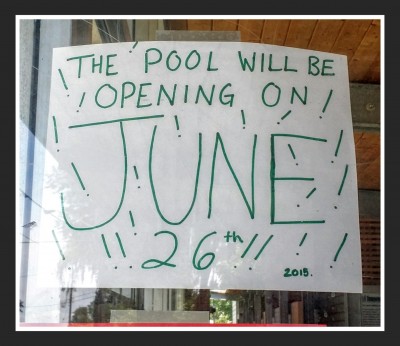 THE POOL WILL BE
OPENING ON
JUNE
26th
2015.